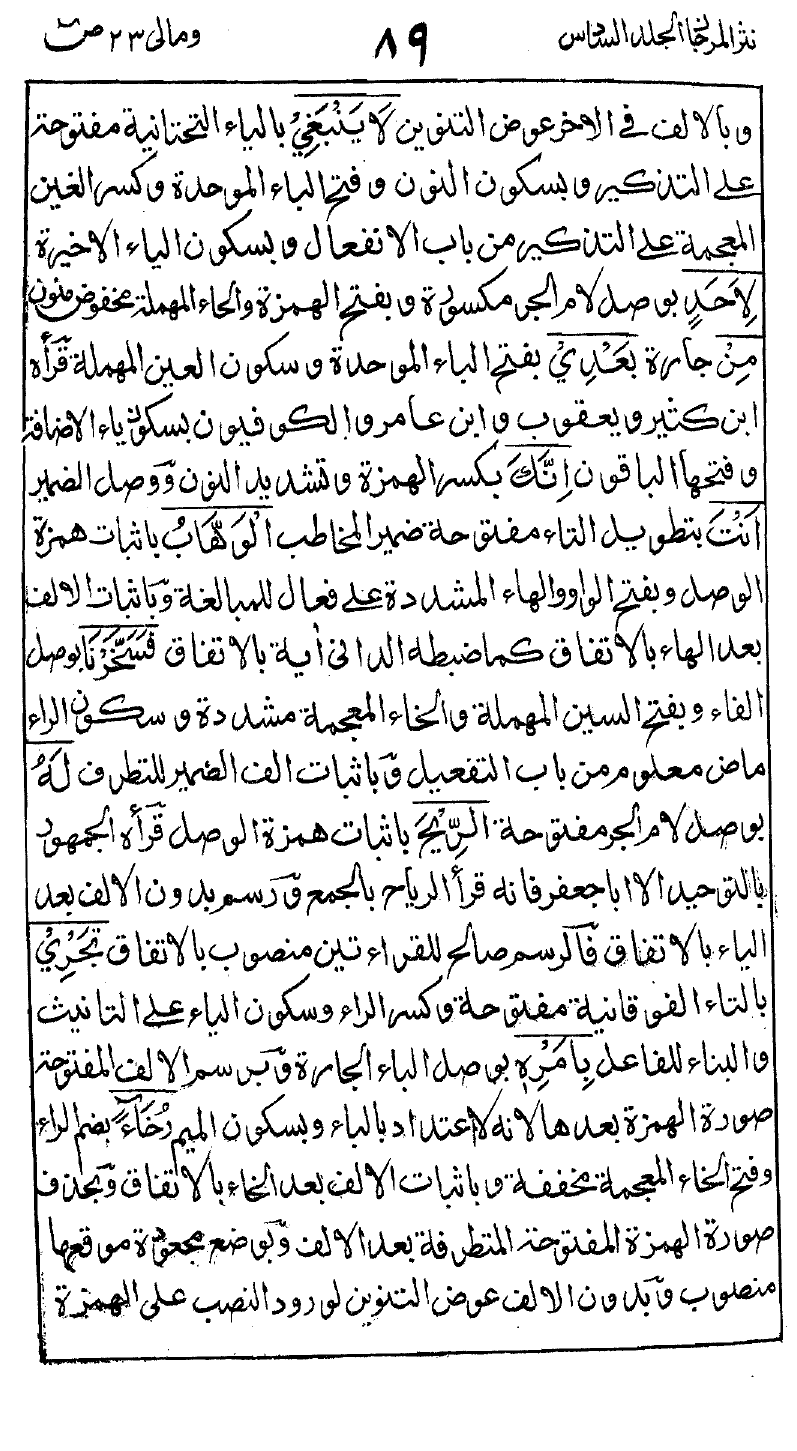 نثر المرجان الجلد السادس ٨٩ ومالى ٢٣ صٓ
وبالالف فى الاخر عوض التنوين لَا يَنْبَغِيْ بالياء التحتانية مفتوحة
على التذكير وبسكون النون وفتح الباء الموحدة وكسر الغين
المعجمة على التذكير من باب الانفعال وبسكون الياء الاخيرة
لِاَحَدٍ بوصل لام الجر مكسورة وبفتح الهمزة والحاء المهملة مخفوض منون
مِنْ جارة بَعْدِيْ بفتح الباء الموحدة وسكون العين المهملة قرأه
ابن كثير ويعقوب وابن عامر والكوفيون بسكون ياء الاضافة
وفتحها الباقون اِنَّكَ بكسر الهمزة وتشديد النون ووصل الضمير
اَنْتَ بتطويل التاء مفتوحة ضمير المخاطب الْوَهَّابُ باثبات همزة
الوصل وبفتح الواو والهاء المشددة على فعال للمبالغة وباثبات الالف
بعد الهاء بالاتفاق كما ضبطه الدانى أية بالاتفاق فَسَخَّرْنَا بوصل
الفاء وبفتح السين المهملة والخاء المعجمة مشددة وسكون الراء
ماض معلوم من باب التفعيل وباثبات الف الضمير للتطرف لَهُ
بوصل لام الجر مفتوحة الرِّيْحَ باثبات همزة الوصل قرأه الجمهور
بالتوحيد الا ابا جعفر فانه قرأ الرياح بالجمع ورسم بدون الالف بعد
الياء بالاتفاق فالرسم صالح للقراءتين منصوب بالاتفاق تَجْرِيْ
بالتاء الفوقانية مفتوحة وكسر الراء وسكون الياء على التانيث
والبناء للفاعل بِاَمْرِهٖ بوصل الباء الجارة وبرسم الالف المفتوحة
صورة الهمزة بعدها لانه لا اعتداد بالباء وبسكون الميم رُخَآءً بضم الراء
وفتح الخاء المعجمة مخففة وباثبات الالف بعد الخاء بالاتفاق وبحذف
صورة الهمزة المفتوحة المتطرفة بعد الالف وبوضع مجعودة موقعها
منصوب وبدون الالف عوض التنوين لورود النصب على الهمزة